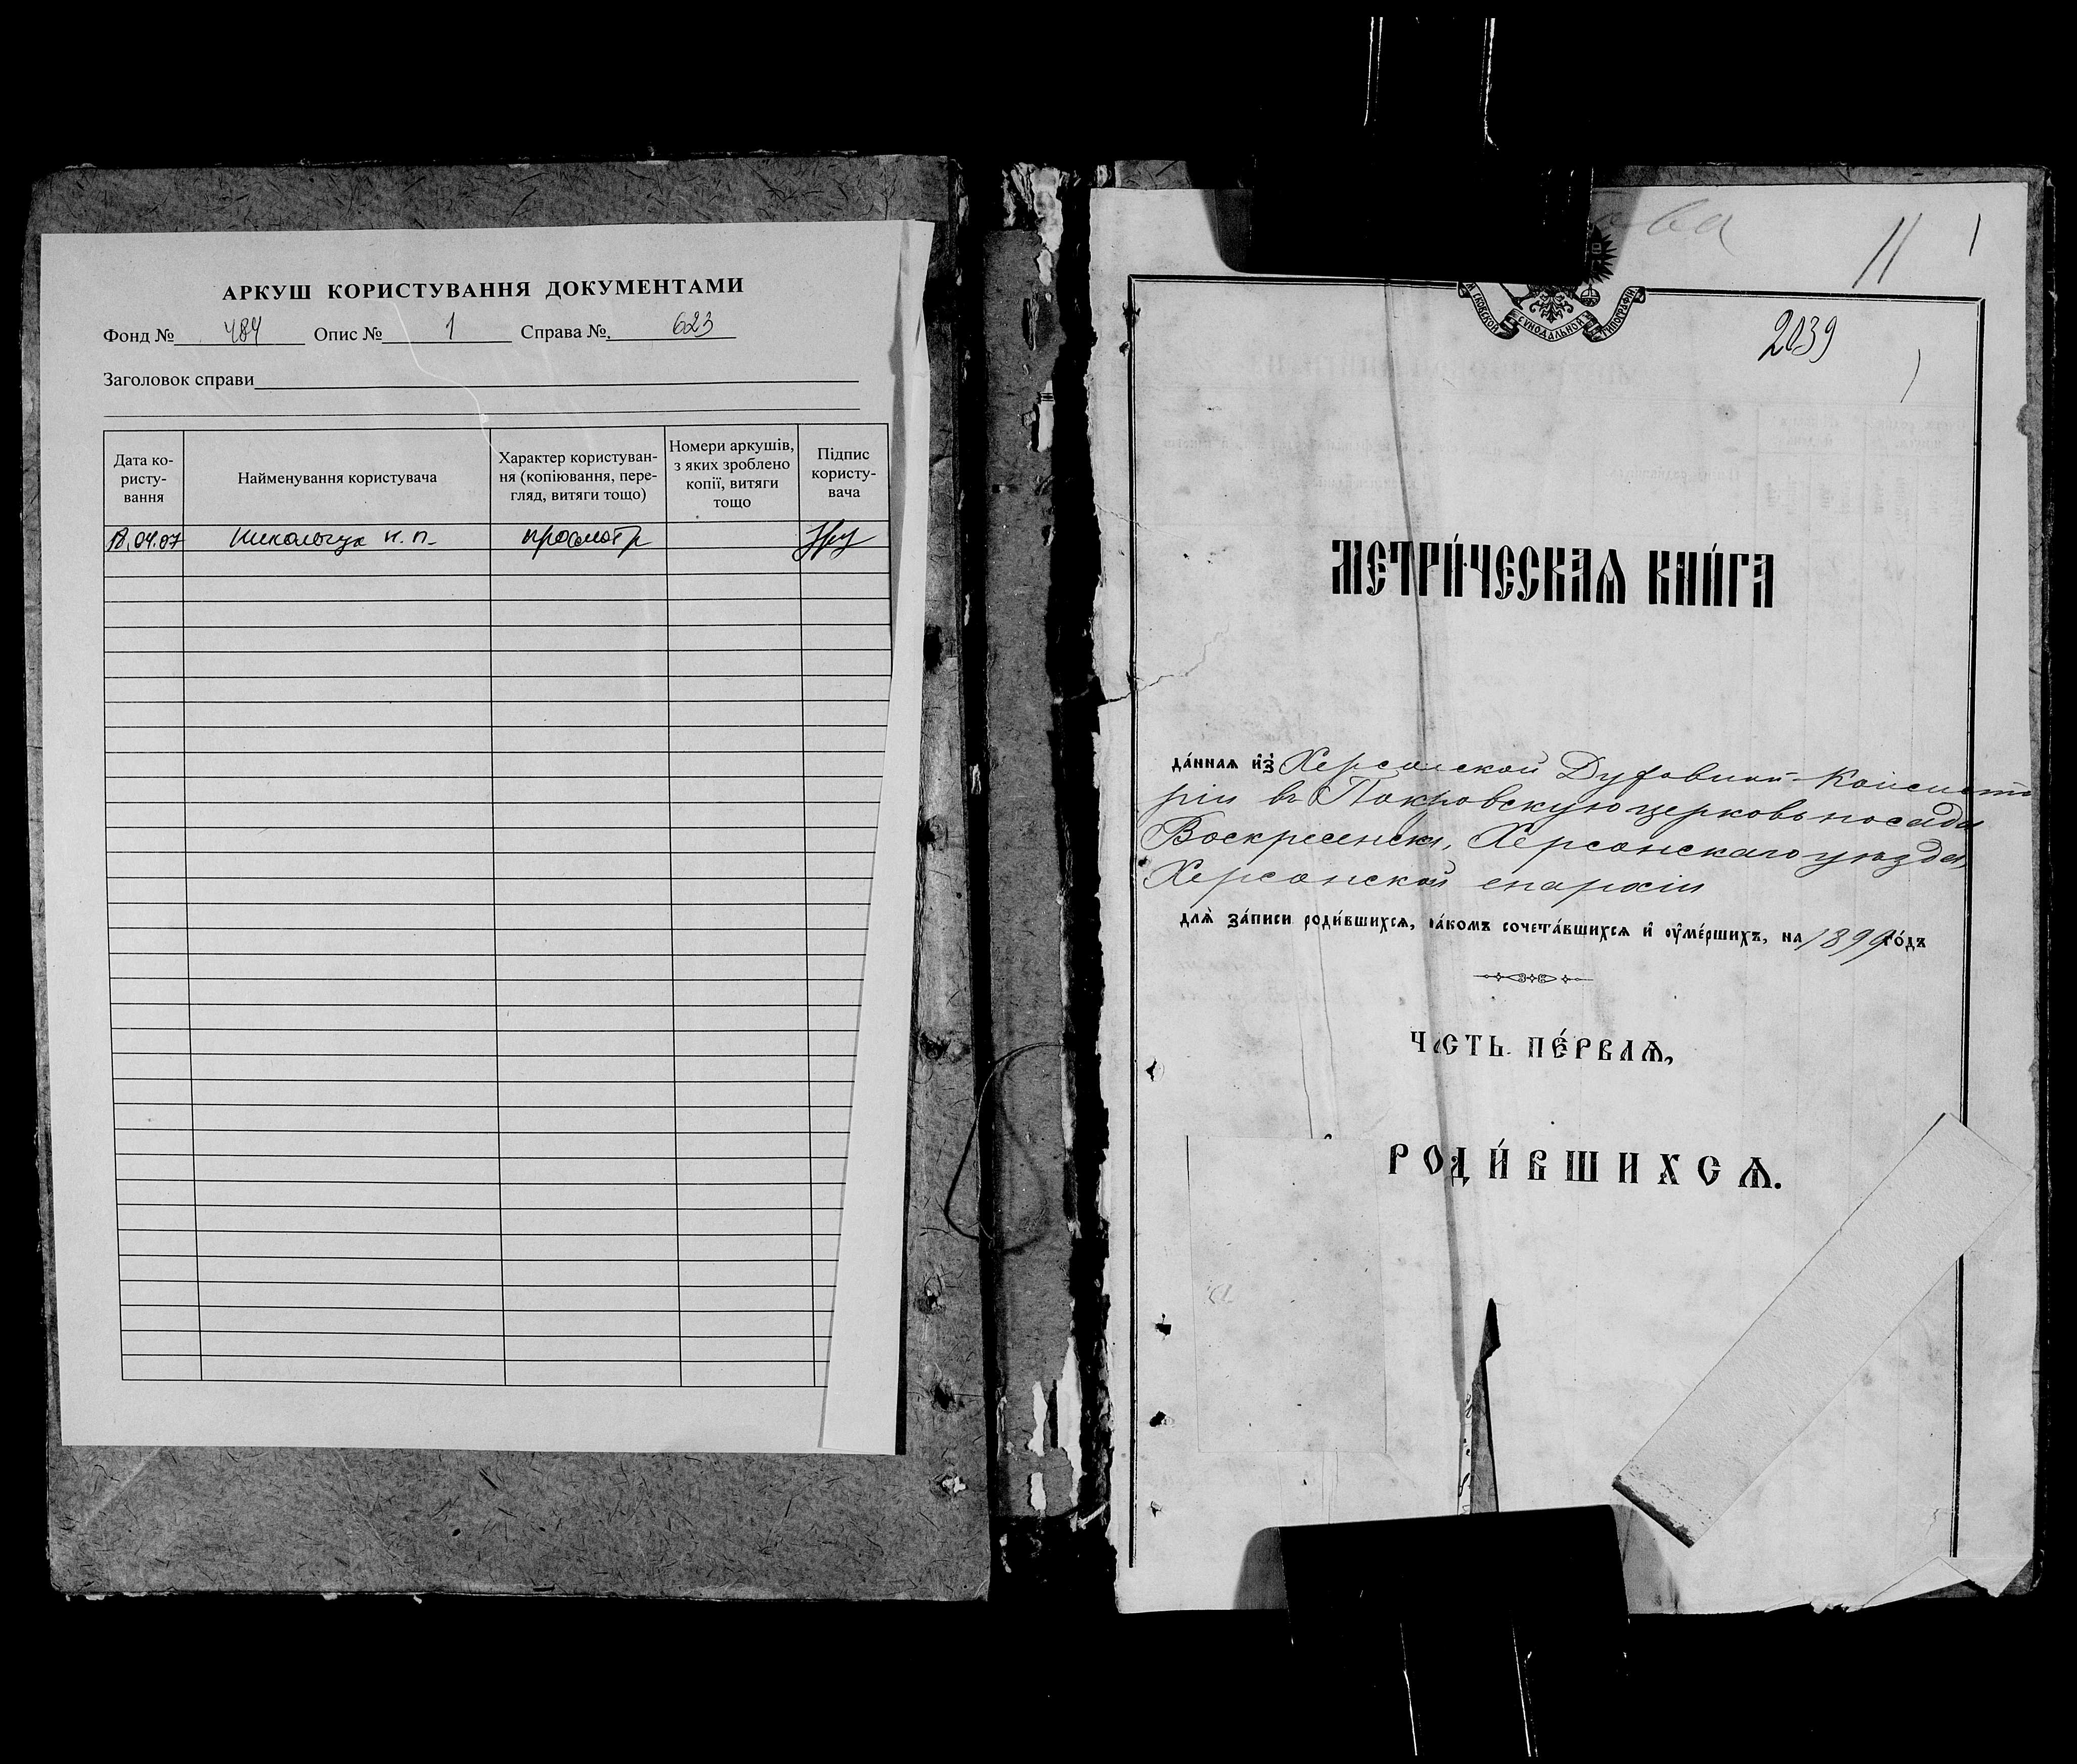 АРКУШ КОРИСТУВАННЯ ДОКУМЕНТАМИ
Фонд № 484 Опис № 1 Справа №. 623
Заголовок справи
Дата ко-
ристу-
вання
Найменування користувача
Характер користуван-
ня (копіювання, пере-
гляд, витяги тощо)
Номери аркушів,
з яких зроблено
копії, витяги
тощо
Підпис
користу-
вача
18.04.07 просмотр
11
1
СУНОДАЛЬНОЙ ТИПОГРАФІИ
2139
МЕТРИ́ЧЕСКАѦ КНИ́ГА
да́ннаѧ и҆з̾ Херсонской Духовной Консисто
ріи въ Покровскую церковь посада
Воскресенска, Херсонскаго уѣзда,
Херсонской епархіи
длѧ̀ за́писи роди́вшихсѧ, ра́комъ сочета́вшихсѧ и҆ оу҆ме́ршихъ, на 1899 го́дъ
ЧАСТЬ ПЕ́РВАѦ,
РОДИ́ВШИХСѦ.